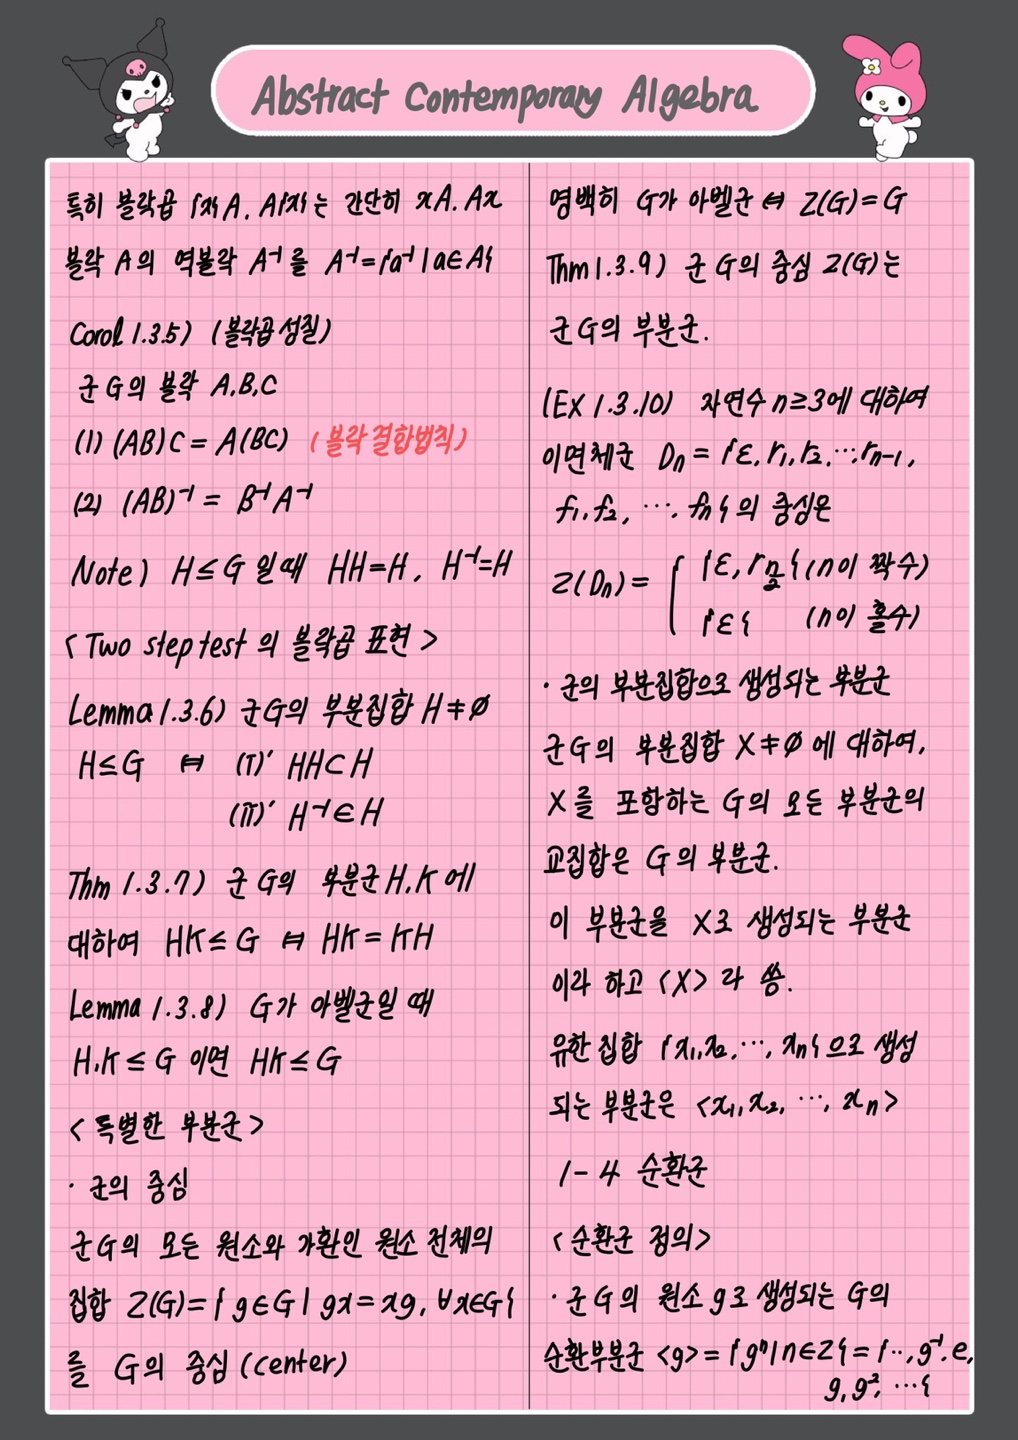 Abstract Contemporary Algebra
특히 블락곱 {x}A, A{x}는 간단히 xA, Ax
블락 A의 역블락 A⁻¹를 A⁻¹={a⁻¹|a∈A}
Corol 1.3.5) (블락곱 성질)
군 G의 블락 A,B,C
(1) (AB)C = A(BC) (블락 결합법칙)
(2) (AB)⁻¹ = B⁻¹A⁻¹
Note) H≤G 일때 HH=H, H⁻¹=H
<Two step test 의 블락곱 표현>
Lemma 1.3.6) 군G의 부분집합 H≠∅
H≤G ⇔ (Ⅰ)′ HH⊂H
(Ⅱ)′ H⁻¹∈H
Thm 1.3.7) 군 G의 부분군 H,K에
대하여 HK≤G ⇔ HK=KH
Lemma 1.3.8) G가 아벨군일 때
H,K≤G 이면 HK≤G
<특별한 부분군>
· 군의 중심
군G의 모든 원소와 가환인 원소 전체의
집합 Z(G)={g∈G | gx=xg, ∀x∈G}
를 G의 중심 (center)
명백히 G가 아벨군 ⇔ Z(G)=G
Thm 1.3.9) 군 G의 중심 Z(G)는
군G의 부분군.
(EX 1.3.10) 자연수 n≥3에 대하여
이면체군 Dₙ={ε, r₁, r₂, ⋯, rₙ₋₁,
f₁, f₂, ⋯, fₙ}의 중심은
Z(Dₙ) = { {ε, r_{n/2}} (n이 짝수)
{ε} (n이 홀수)
· 군의 부분집합으로 생성되는 부분군
군G의 부분집합 X≠∅에 대하여,
X를 포함하는 G의 모든 부분군의
교집합은 G의 부분군.
이 부분군을 X로 생성되는 부분군
이라 하고 <X> 라 씀.
유한 집합 {x₁,x₂,⋯, xₙ}으로 생성
되는 부분군은 <x₁,x₂, ⋯, xₙ>
1-4 순환군
<순환군 정의>
· 군 G의 원소 g로 생성되는 G의
순환부분군 <g>={gⁿ|n∈Z}={⋯, g⁻¹, e,
g, g², ⋯}